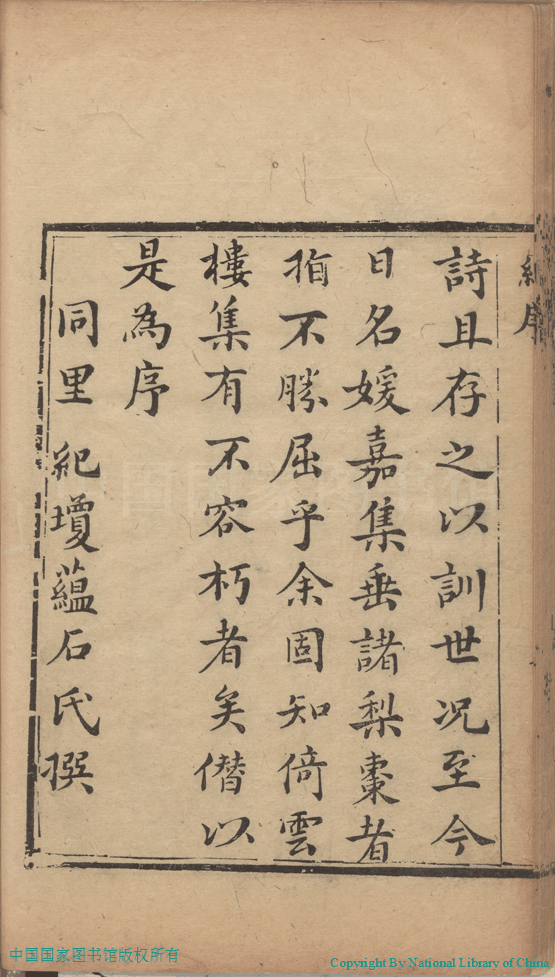 紀序
詩且存之以訓世况至今
日名媛嘉集垂諸梨棗者
指不勝屈乎余固知倚雲
樓集有不容朽者矣僭以
是為序
同里 紀瓊蘊石氏撰
中国国家图书馆版权所有
Copyright By National Library of China